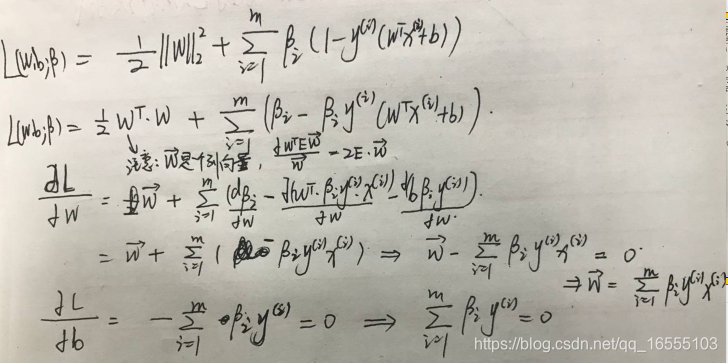 L(w,b;β) = 1/2 ||W||₂² + Σ_{i=1}^{m} β_i (1-y^{(i)}(w^T x^{(i)}+b))
L(w,b;β) = 1/2 W^T·W + Σ_{i=1}^{m} (β_i - β_i y^{(i)}(w^T x^{(i)}+b)).
注意: W⃗是个列向量, dW^T E W⃗ / W⃗ = 2E·W⃗
∂L/∂W = W⃗ + Σ_{i=1}^{m} (dβ_i/dw - d(w^T·β_i y^{(i)}·x^{(i)})/dw - d(bβ_i y^{(i)})/dw).
= W⃗ + Σ_{i=1}^{m} ( - β_i y^{(i)} x^{(i)}) ⇒ W⃗ - Σ_{i=1}^{m} β_i y^{(i)} x^{(i)} = 0
⇒ W⃗ = Σ_{i=1}^{m} β_i y^{(i)} x^{(i)}
∂L/∂b = - Σ_{i=1}^{m} β_i y^{(i)} = 0 ⇒ Σ_{i=1}^{m} β_i y^{(i)} = 0
https://blog.csdn.net/qq_16555103